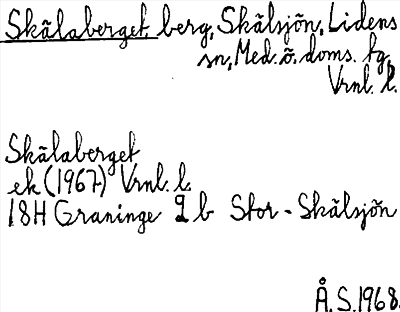 Skålaberget, berg, Skålsjön, Lidens
sn, Med. ö. doms. tg,
Vrnl. l.
Skålaberget
ek (1967) Vrnl. l.
18H Graninge 2 b Stor-Skålsjön
Å.S.1968.